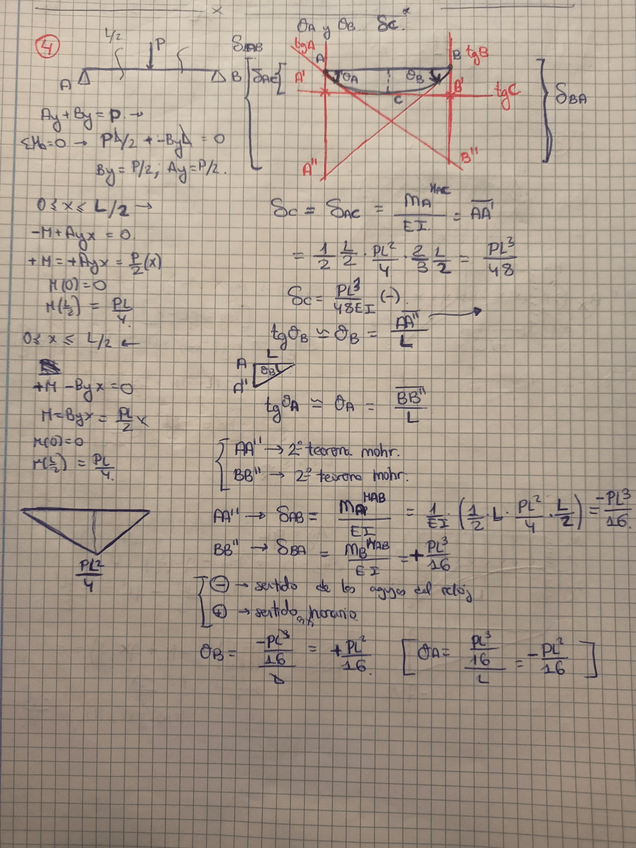 4
L/2
P
A
B
Ay + By = P. →
ΣMb=0 → PL/2 + -ByL = 0
By = P/2; Ay = P/2.
0 ≤ x ≤ L/2 →
-M + Ayx = 0
+M = +Ayx = P/2 (x)
M(0) = 0
M(L/2) = PL/4.
0 ≤ x ≤ L/2 ←
+M - Byx = 0
M = Byx = PL/2 x
M(0) = 0
M(L/2) = PL/4.
PL²/4
θA y θB δc*
δAB
δAC
tgA
A
B
tgB
A'
θA
θB
C
B'
tgC
A''
B''
δBA
δc = δAC = MA^MAC/EI = AA'
= 1/2 L/2 · PL²/4 · 2/3 L/2 = PL³/48
δc = PL³/48EI (-).
tgθB ≃ θB = AA''/L
A
L
θB
A''
tgθA ≃ θA = BB''/L
AA'' → 2º teorema mohr.
BB'' → 2º teorema mohr.
AA'' → δAB = MA^MAB/EI = 1/EI · (1/2 · L · PL²/4 · L/2) = -PL³/16.
BB'' → δBA = MB^MAB/EI = +PL³/16
⊖ → sentido de las agujas del reloj
⊕ → sentido antihorario
θB = -PL³/16/L = +PL²/16
[θA = PL³/16/L = -PL²/16]